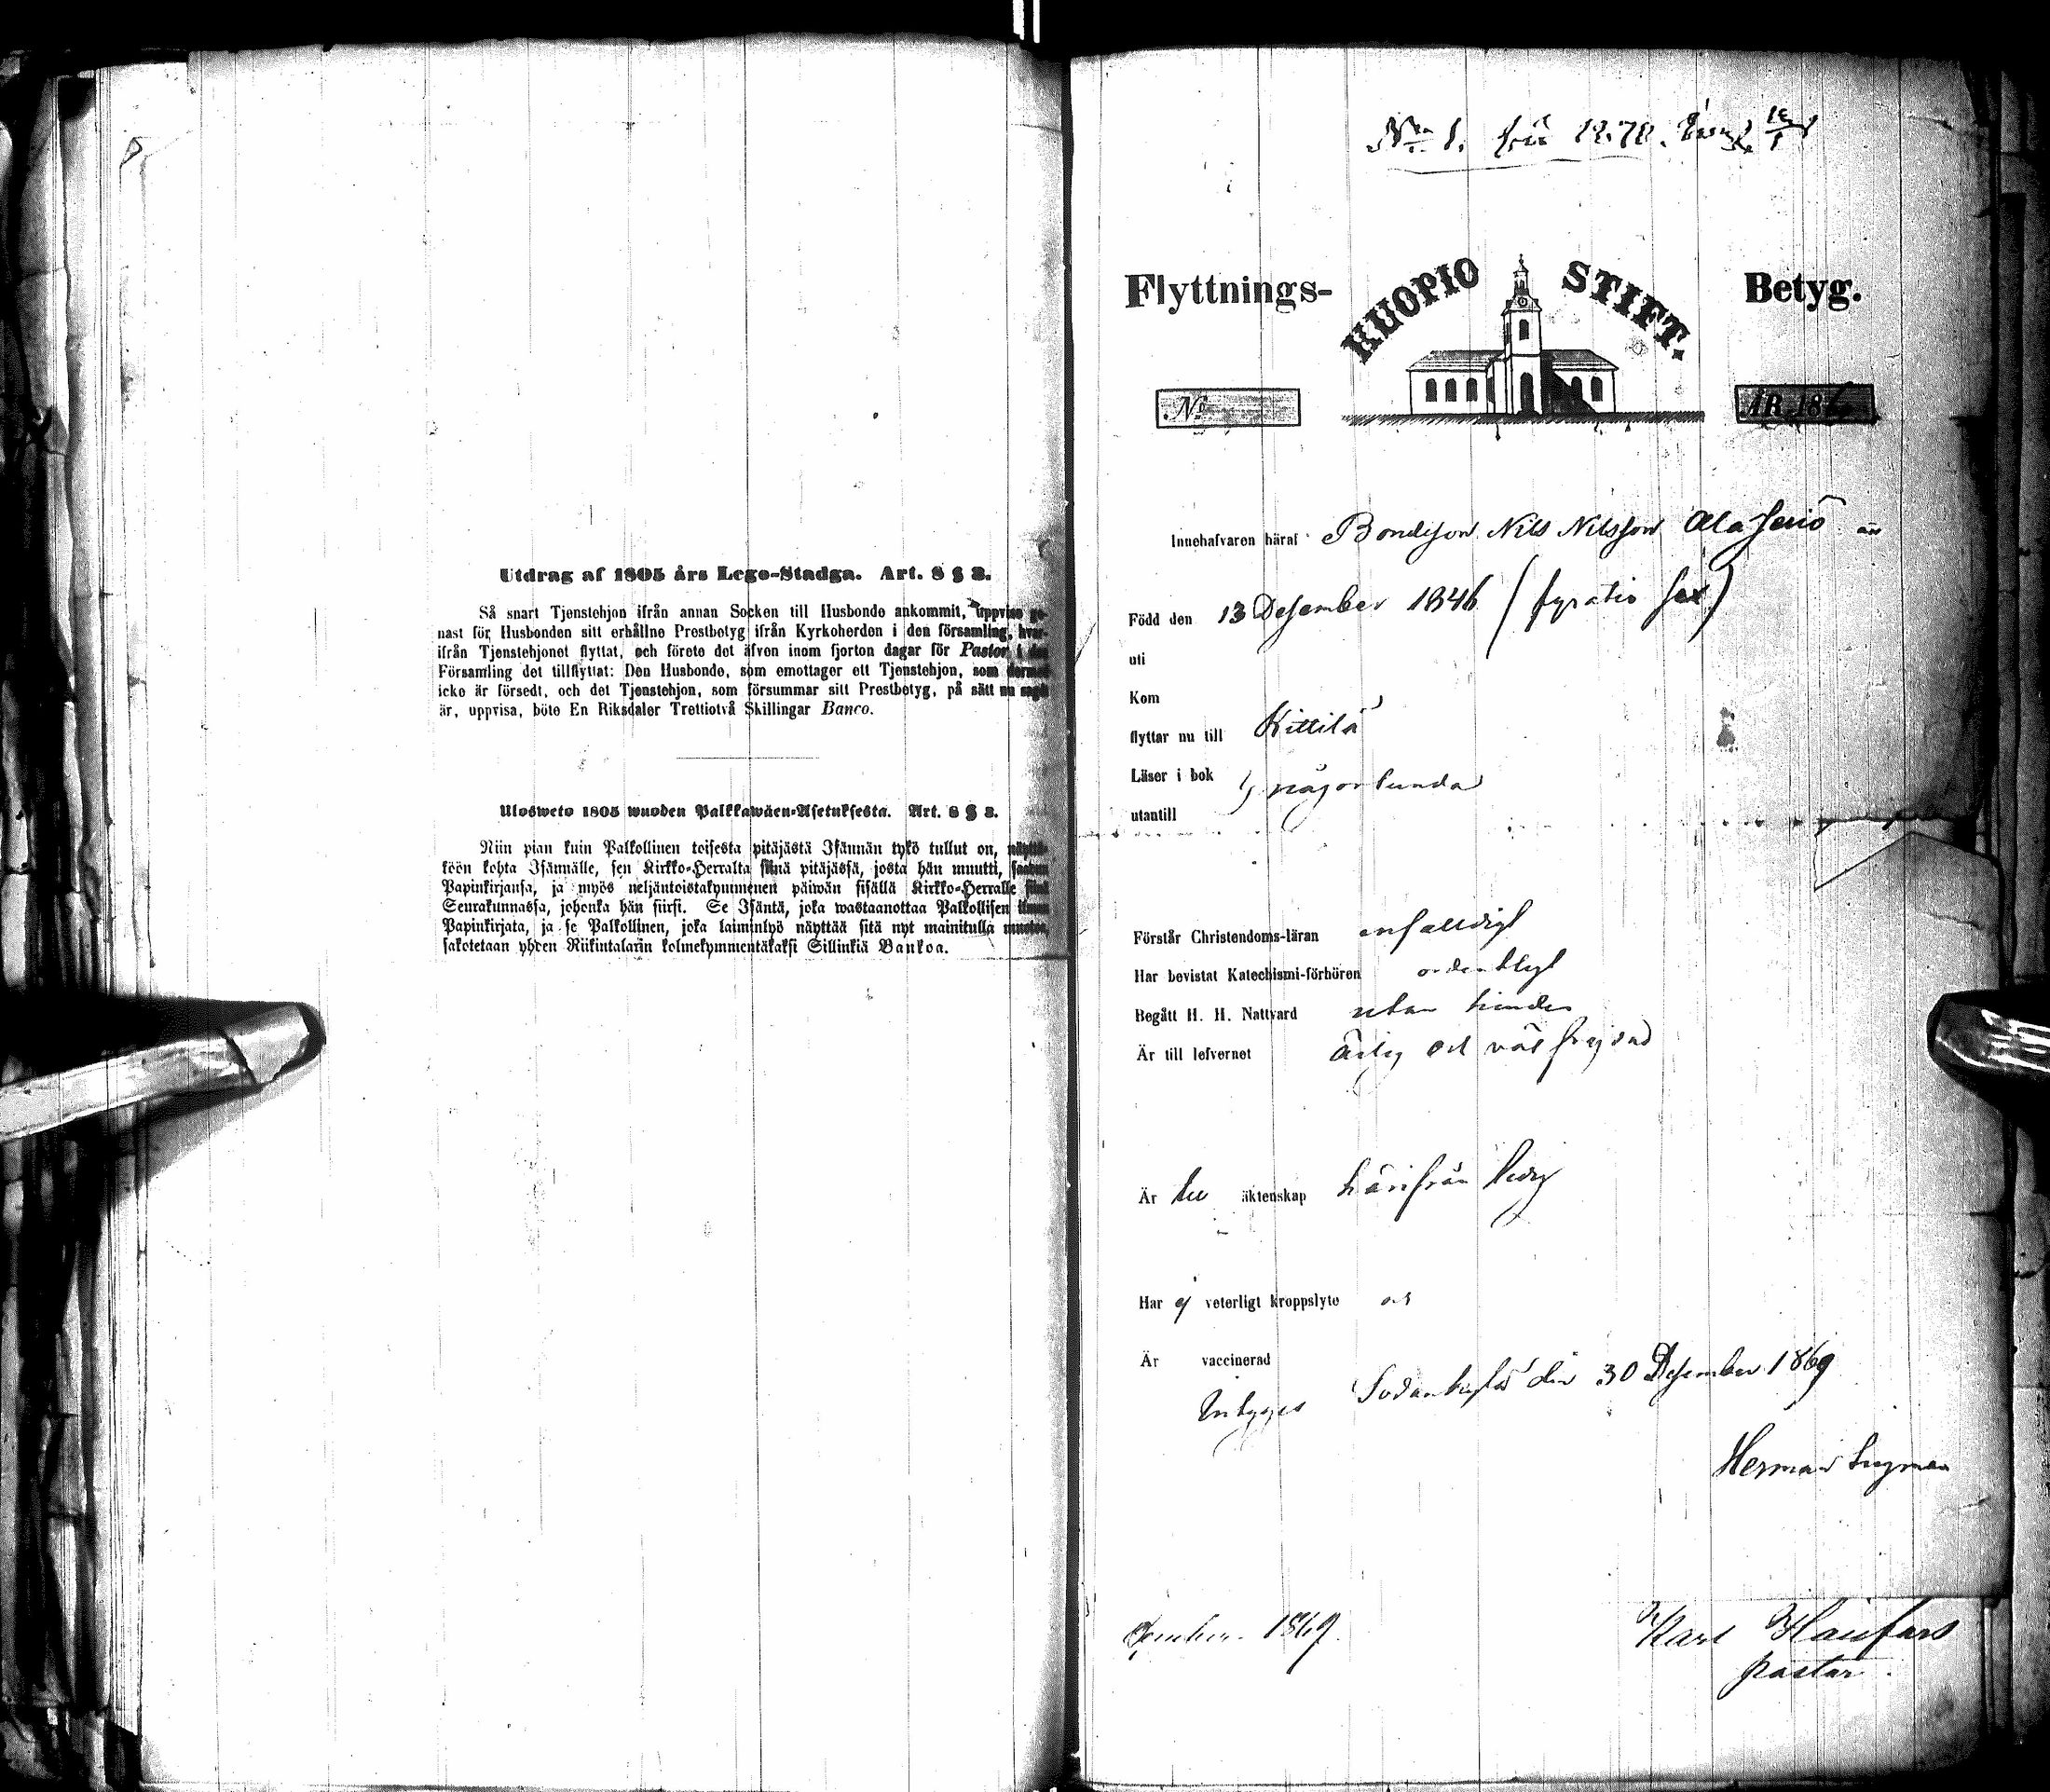 Utdrag af 1805 års Lego-Stadga. Art. 8 § 3.
Så snart Tjenstehjon ifrån annan Socken till Husbonde ankommit, uppvise ge-
nast för Husbonden sitt erhållne Prestbetyg ifrån Kyrkoherden i den församling, hvar-
ifrån Tjenstehjonet flyttat, och förete det äfven inom fjorton dagar för Pastor i den
Församling det tillflyttat: Den Husbonde, som emottager ett Tjenstehjon, som dermed
icke är försedt, och det Tjenstehjon, som försummar sitt Prestbetyg, på sätt nu sagdt
är, uppvisa, böte En Riksdaler Trettiotvå Skillingar Banco.
Ulosweto 1805 wuoden Palkkawäen-Asetuksesta. Art. 8 § 3.
Niin pian kuin Palkollinen toisesta pitäjästä Isännän tykö tullut on, näyttä-
köön kohta Isännälle, sen Kirkko-Herralta siinä pitäjässä, josta hän muutti, saadun
Papinkirjansa, ja myös neljäntoistakymmenen päiwän sisällä Kirkko-Herralle siinä
Seurakunnassa, johonka hän siirsi. Se Isäntä, joka wastaanottaa Palkollisen ilman
Papinkirjata, ja se Palkollinen, joka laiminlyö näyttää sitä nyt mainitulla muoton,
sakotetaan yhden Riikintalarin kolmekymmentäkaksi Sillinkiä Bankoa.
No 1. från 1870.
Flyttnings- KUOPIO STIFT. Betyg.
No ÅR 186
Innehafvaren häraf Bondeson Nils Nilsson Ala Seriö är
Född den 13 Desember 1846 (fyratio sex)
uti
Kom
flyttar nu till Kittilä
Läser i bok någorlunda
utantill
Förstår Christendoms-läran enfalldigt
Har bevistat Katechismi-förhören ordentligt
Begått H. H. Nattvard utan hinder
Är till lefvernet ärlig och väl frejdad
Är till äktenskap härifrån ledig
Har ej veterligt kroppslyte och
Är vaccinerad
intygas Sodankylä den 30 Desember 1869
Herman
December 1869. Karl
pastor.